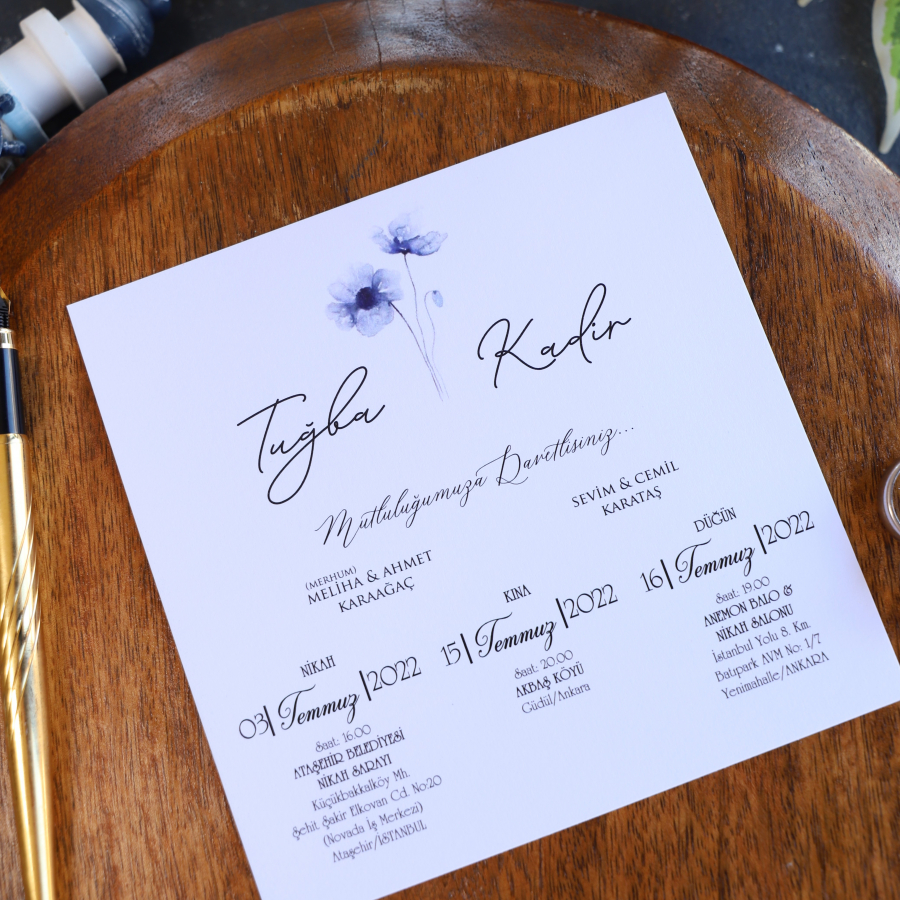 Tuğba
Kadir
Mutluluğumuza Davetlisiniz...
(MERHUM)
MELİHA & AHMET
KARAAĞAÇ
SEVİM & CEMİL
KARATAŞ
NİKAH
03| Temmuz |2022
Saat: 16.00
ATAŞEHİR BELEDİYESİ
NİKAH SARAYI
Küçükbakkalköy Mh.
Şehit Şakir Elkovan Cd. No:20
(Novada İş Merkezi)
Ataşehir/İSTANBUL
KINA
15| Temmuz |2022
Saat: 20.00
AKBAŞ KÖYÜ
Güdül/Ankara
DÜĞÜN
16| Temmuz |2022
Saat: 19.00
ANEMON BALO &
NİKAH SALONU
İstanbul Yolu 8. Km.
Batıpark AVM No: 1/7
Yenimahalle/ANKARA